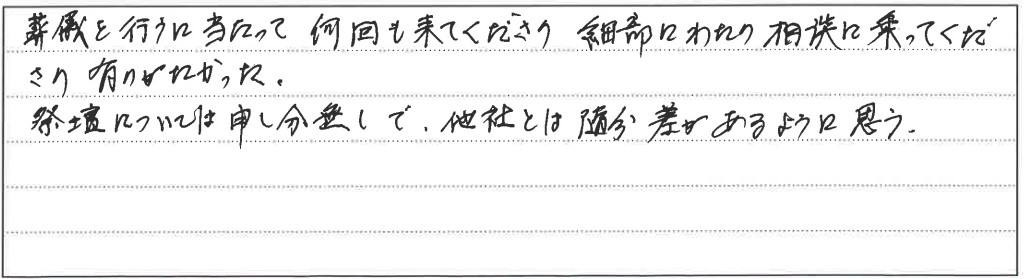 葬儀を行うに当たって 何回も来てくださり 細部にわたり相談に乗ってくだ
さり 有りがたかった。
祭壇については申し分無しで、他社とは随分差があるように思う。